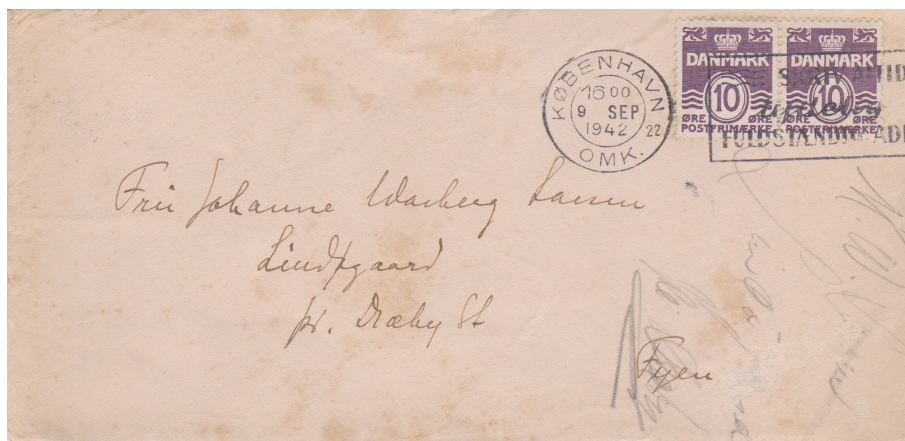 KØBENHAVN
16 00
9 SEP
1942 22
OMK.
DANMARK
10
ØRE ØRE
POSTFRIMÆRKE
DANMARK
10
ØRE ØRE
POSTFRIMÆRKE
SKRIV ALTID
FULDSTÆNDIG ADR
Fru Johanne Warberg Larsen
Lindøgaard
pr. Dræby St
Fyen